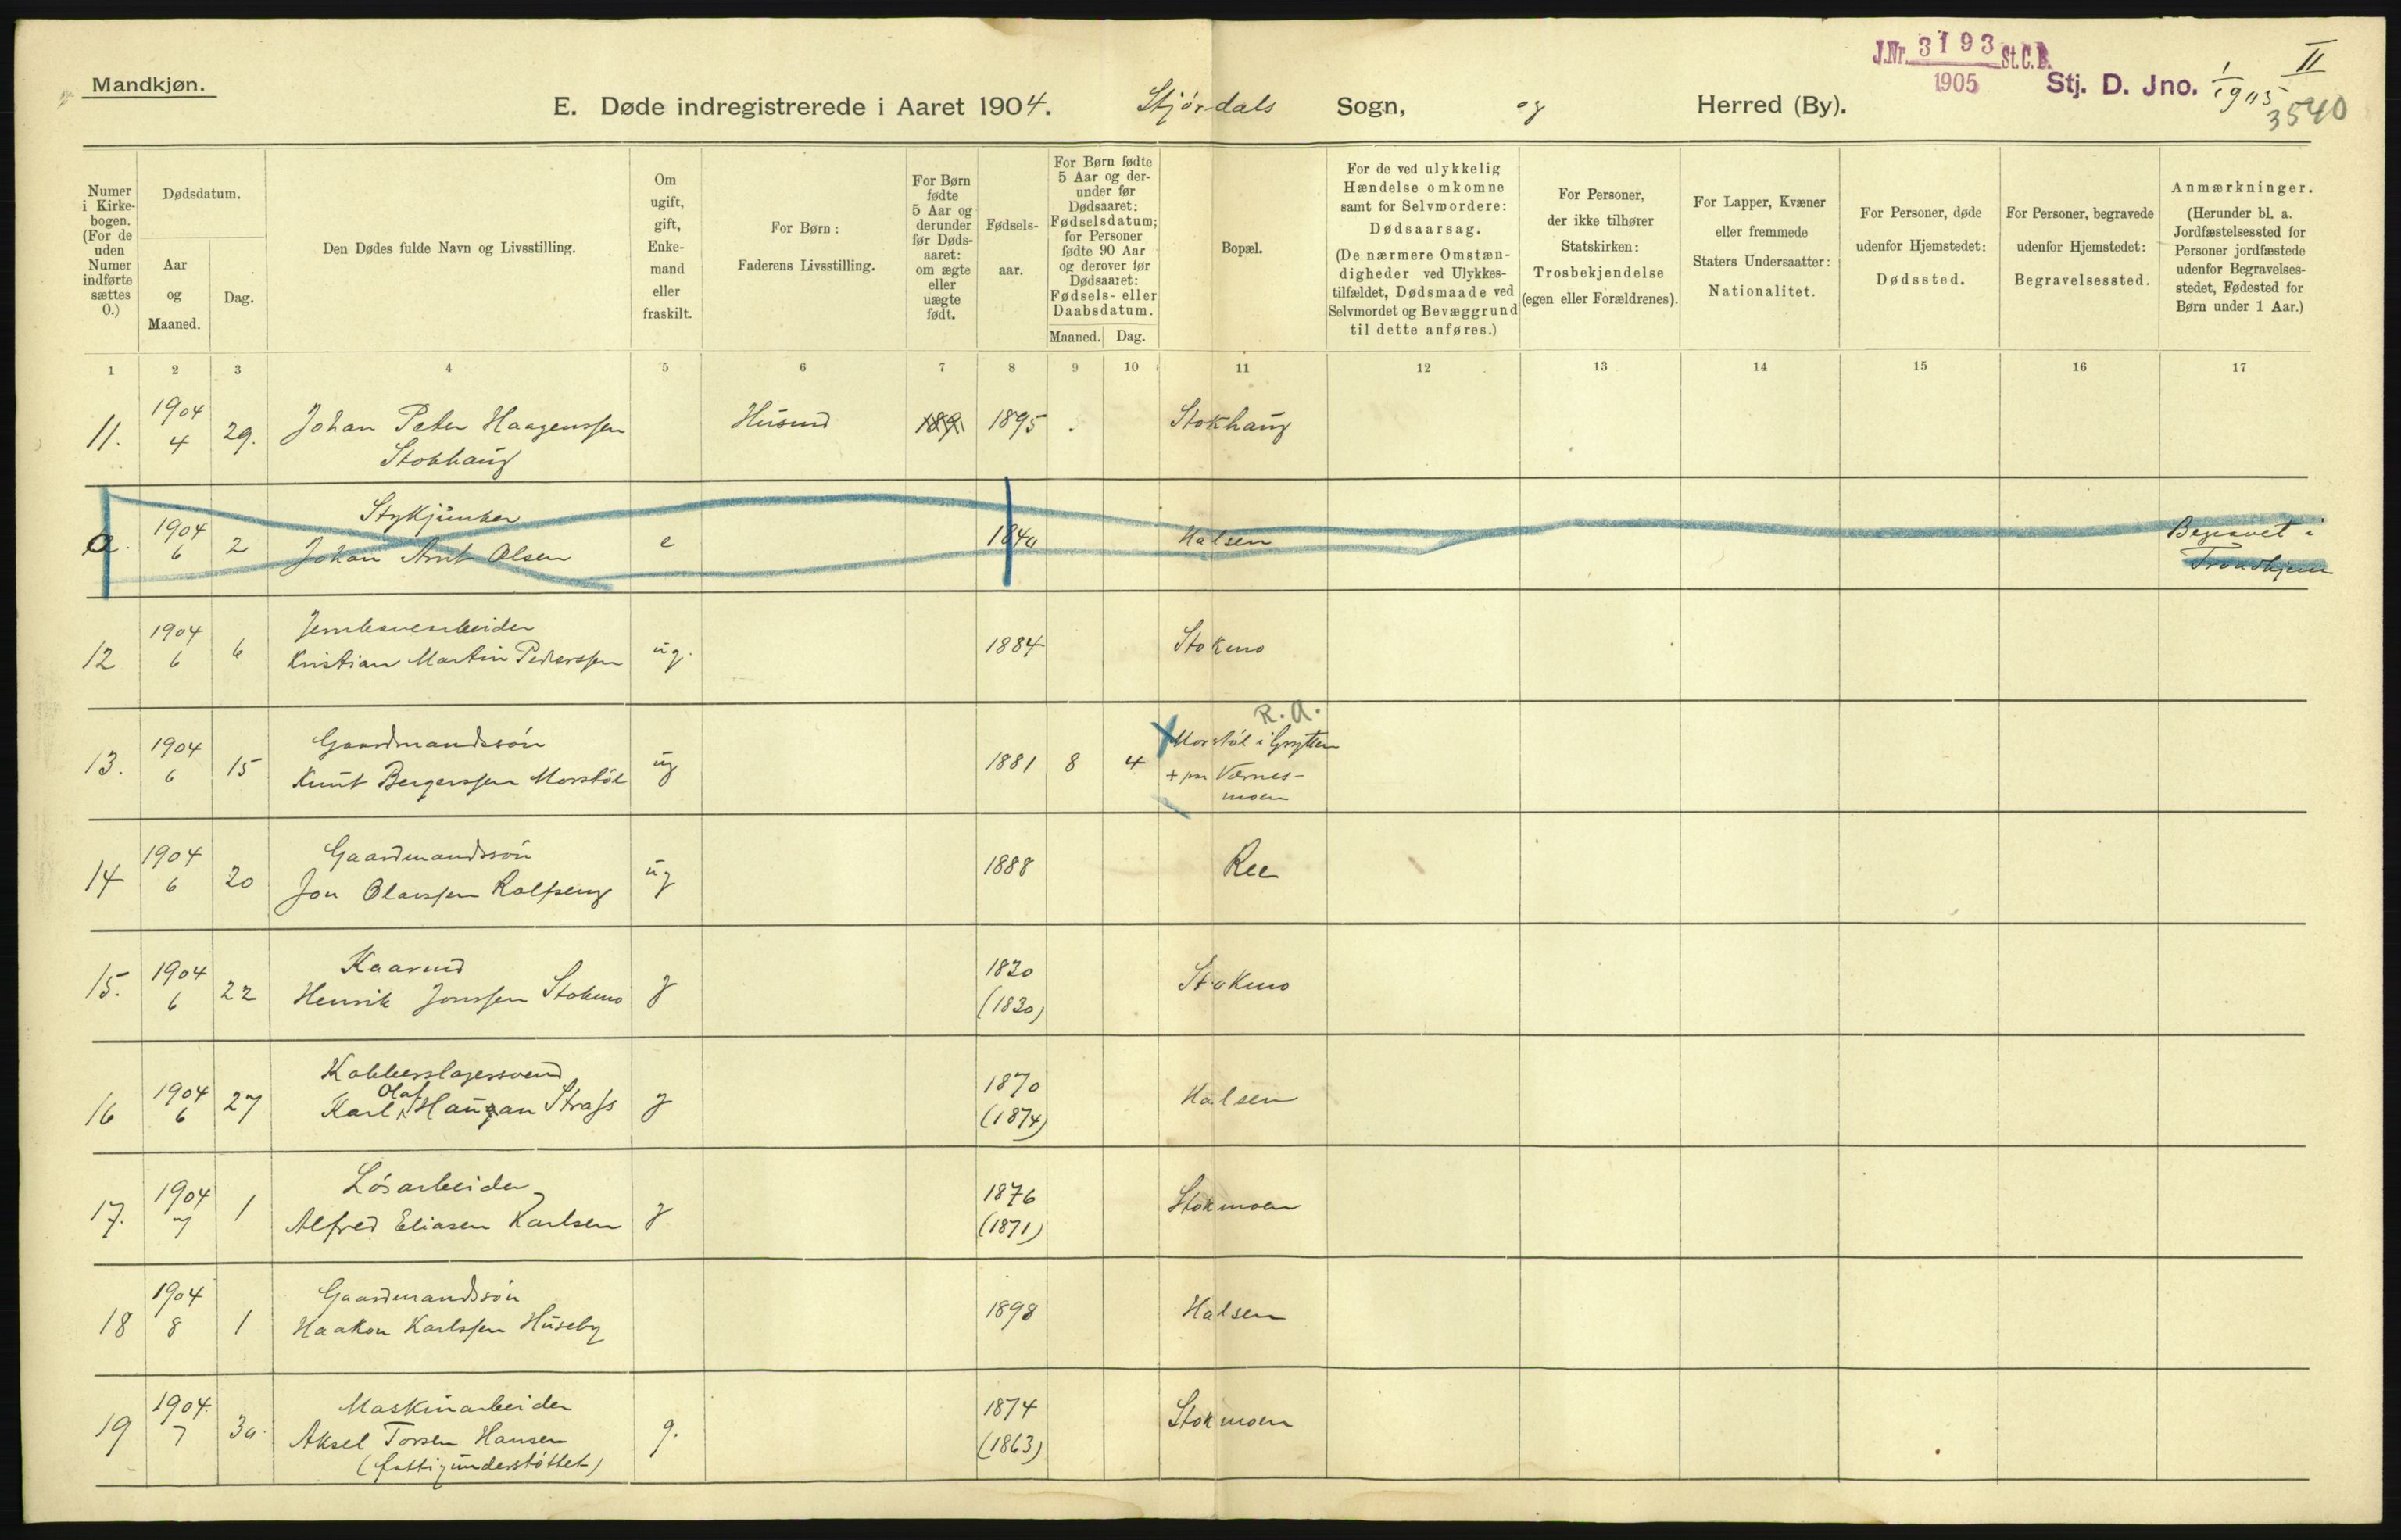 Mandkjøn.
J.Nr. 3193 St.C.B.
1905
Stj. D. Jno.
II
3540
E. Døde indregistrerede i Aaret 1904. Stjørdals Sogn, og Herred (By).
Numer i Kirke-bogen. (For de uden Numer indførte sættes 0.)
Dødsdatum.
Aar og Maaned.
Dag.
Den Dødes fulde Navn og Livsstilling.
Om ugift, gift, Enke-mand eller fraskilt.
For Børn: Faderens Livsstilling.
For Børn fødte 5 Aar og derunder før Døds-aaret: om ægte eller uægte født.
Fødsels-aar.
For Børn fødte 5 Aar og der-under før Dødsaaret: Fødselsdatum; for Personer fødte 90 Aar og derover før Dødsaaret: Fødsels- eller Daabsdatum.
Maaned. Dag.
Bopæl.
For de ved ulykkelig Hændelse omkomne samt for Selvmordere: Dødsaarsag. (De nærmere Omstæn-digheder ved Ulykkes-tilfældet, Dødsmaade ved Selvmordet og Bevæggrund til dette anføres.)
For Personer, der ikke tilhører Statskirken: Trosbekjendelse (egen eller Forældrenes).
For Lapper, Kvæner eller fremmede Staters Undersaatter: Nationalitet.
For Personer, døde udenfor Hjemstedet: Dødssted.
For Personer, begravede udenfor Hjemstedet: Begravelsessted.
Anmærkninger. (Herunder bl. a. Jordfæstelsessted for Personer jordfæstede udenfor Begravelses-stedet, Fødested for Børn under 1 Aar.)
1 2 3 4 5 6 7 8 9 10 11 12 13 14 15 16 17
11. 1904 4 29. Johan Peter Haagenssen Husmd 1895 Stokhaug
Stokhaug
Stykjunker
0. 1904 6 2 Johan Arnt Olsen e 1840 Halsen Begravet i
Trondhjem
Jernbanearbeider
12 1904 6 6 Kristian Martin Pederssen ug. 1884 Stokmo
R. A.
Gaardmandssøn
13. 1904 6 15 Knut Bergerssen Morstøl ug 1881 8 4 Morstøl i Grytten
+ paa Værnes-
moen
Gaardmandssøn
14 1904 6 20 Jon Olaussen Rolfseng ug 1888 Ree
Kaarmd
15. 1904 6 22 Henrik Jonssen Stokmo g 1830 Stokmo
(1830)
Kobberslagersvend
16 1904 6 27 Karl Olaf Haugan Strass g 1870 Halsen
(1874)
Løsarbeider
17. 1904 7 1 Alfred Eliasen Karlsen g 1876 Stokmoen
(1871)
Gaardmandssøn
18 1904 8 1 Haakon Karlssen Huseby 1898 Halsen
Maskinarbeider
19 1904 7 30 Aksel Torsen Hansen g. 1874 Stokmoen
(fattigunderstøttet) (1863)